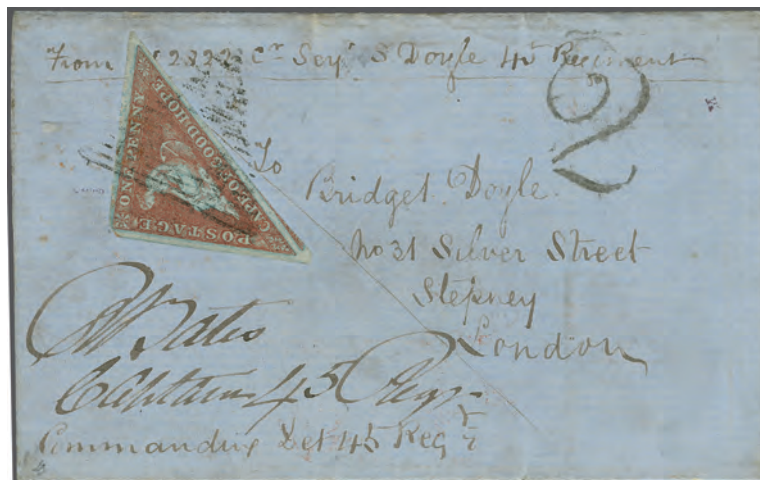 From 2322 Cr Sergt S Doyle 45 Regiment
2
POSTAGE
ONE PENNY
CAPE OF GOOD HOPE
To
Bridget Doyle
No 31 Silver Street
Stepney
London
Captain 45 Regt
Commanding Det 45 Regt